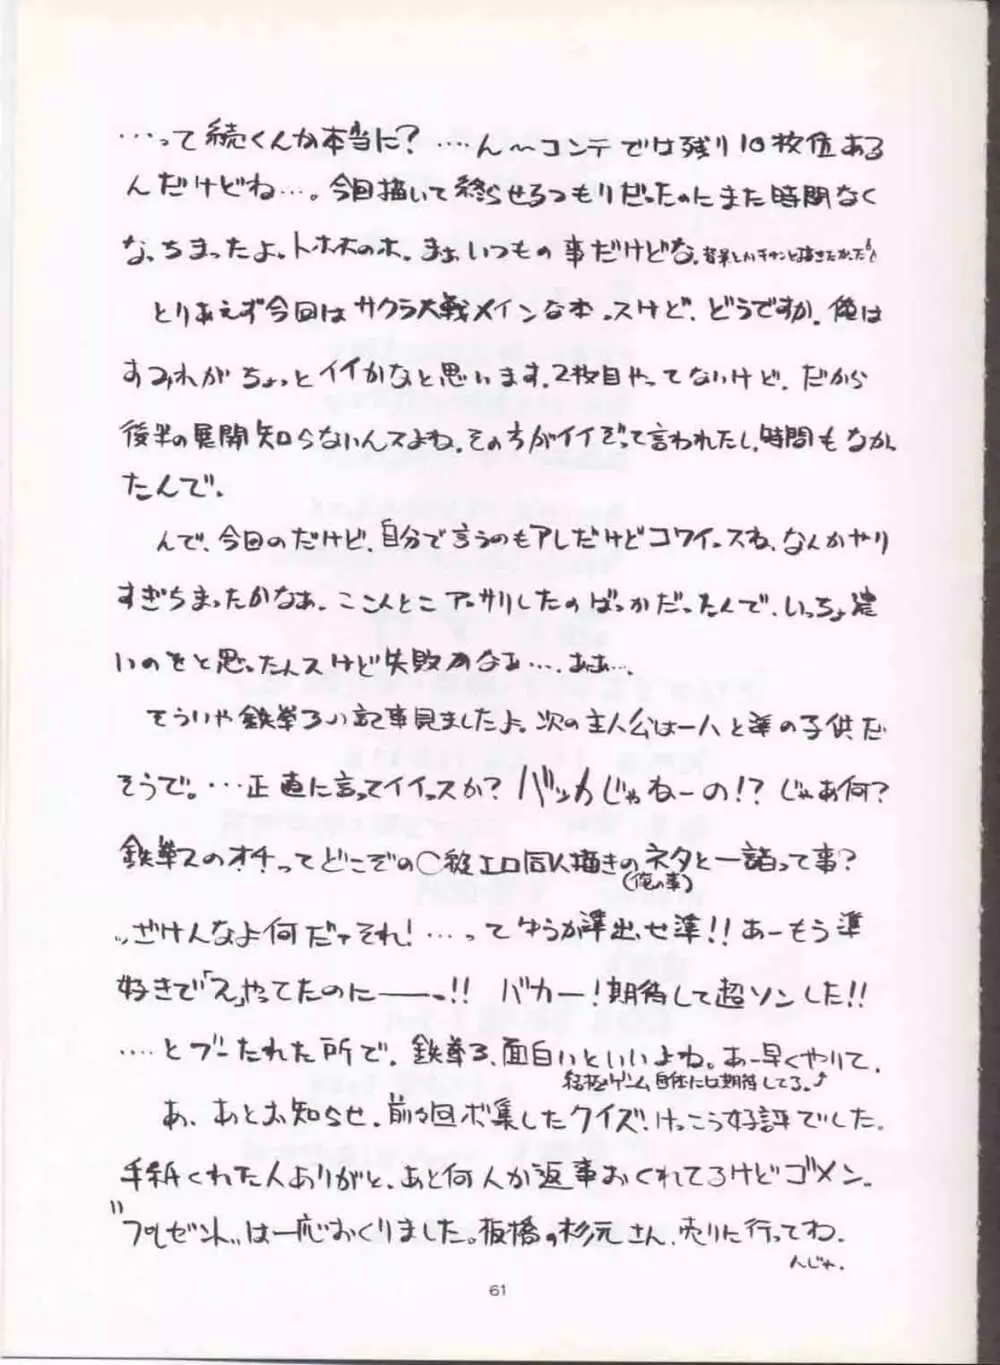 …って続くんか本当に?……ん〜コンテでは残り10枚位ある
んだけどね…。今回描いて終らせるつもりだったのにまた時間なく
なっちまったよ。トホホのホ。まぁ、いつもの事だけどな。背景とかキチンと描きたかった!
とりあえず今回はサクラ大戦メインな本っスけど、どうですか。俺は
すみれがちょっとイイかなと思います。2枚目やってないけど、だから
後半の展開知らないんスよね。そのもちがイイぞって言われたし、時間もなかっ
たんで。
んで、今回のだけど、自分で言うのもアレだけどコワイっスね、なんかやり
すぎちまったかなあ。ここんとこアッサリしたのばっかだったんで、いっちょ濃
いのをと思ったんスけど失敗かなぁ…、ああ…
そういや鉄拳3の記事見ましたよ。次の主人公は一八と準の子供だ
そうで。…正直に言ってイイっスか?バッカじゃねーの!?じゃあ何?
鉄拳2のオチってどこぞの〇級エロ同人描きのネタと一緒って事?
(俺の事)
ッざけんなよ何だァそれ!…って ゆうか準出せ準!!あーもう準
好きで「2」やってたのに――っ!! バカー!期待して超ソンした!!
……とブーたれた所で、鉄拳3、面白いといいよね。あー早くやりて、
結極ゲーム自体には期待してる。
あ、あとお知らせ、前々回ボ集したクイズ、けっこう好評でした。
手紙くれた人ありがと、あと何人か返事おくれてるけどゴメン。
"プレゼント"は一応おくりました。板橋の杉元さん、売りに行ってね。
んじゃ.
61